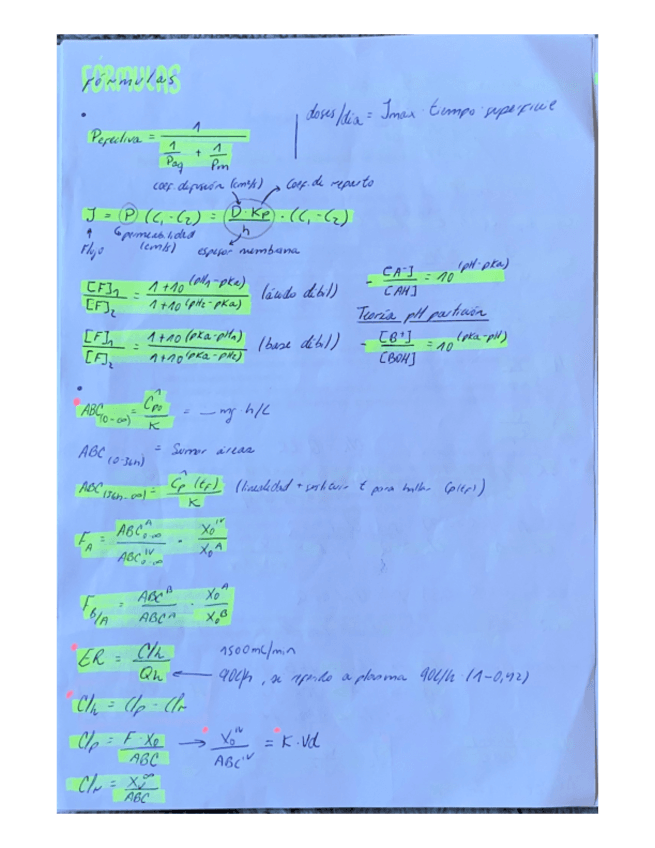 FÓRMULAS
Pefectiva = 1 / (1/Paq + 1/Pm)
doses/día = Jmax · tiempo · superficie
coef. difusión (cm²/s) Coef. de reparto
J = P (C₁-C₂) = D·Kp / h · (C₁-C₂)
Flujo
permeabilidad (cm/s)
espesor membrana
[F]₁/[F]₂ = 1+10^(pH₁-pKa) / 1+10^(pH₂-pKa) (ácido débil)
- [A⁻]/[AH] = 10^(pH-pKa)
Teoría pH partición
[F]₁/[F]₂ = 1+10^(pKa-pH₁) / 1+10^(pKa-pH₂) (base débil)
- [B⁺]/[BOH] = 10^(pKa-pH)
ABC(0-∞) = Ĉp₀/K = — mg·h/L
ABC(0-36h) = Sumar áreas
ABC(36h-∞) = Ĉp(tF)/K (linealidad + sustituir t para hallar Cp(tF))
F_A = ABC^A 0-∞ / ABC^IV 0-∞ · X₀^IV / X₀^A
F_B/A = ABC^B / ABC^A · X₀^A / X₀^B
ER = Clh/Qh
1500mL/min
90L/h, se refiere a plasma 90L/h (1-0,42)
Clh = Clp - Clr
Clp = F·X₀/ABC → X₀^IV/ABC^IV = K·Vd
Clr = Xu^∞/ABC